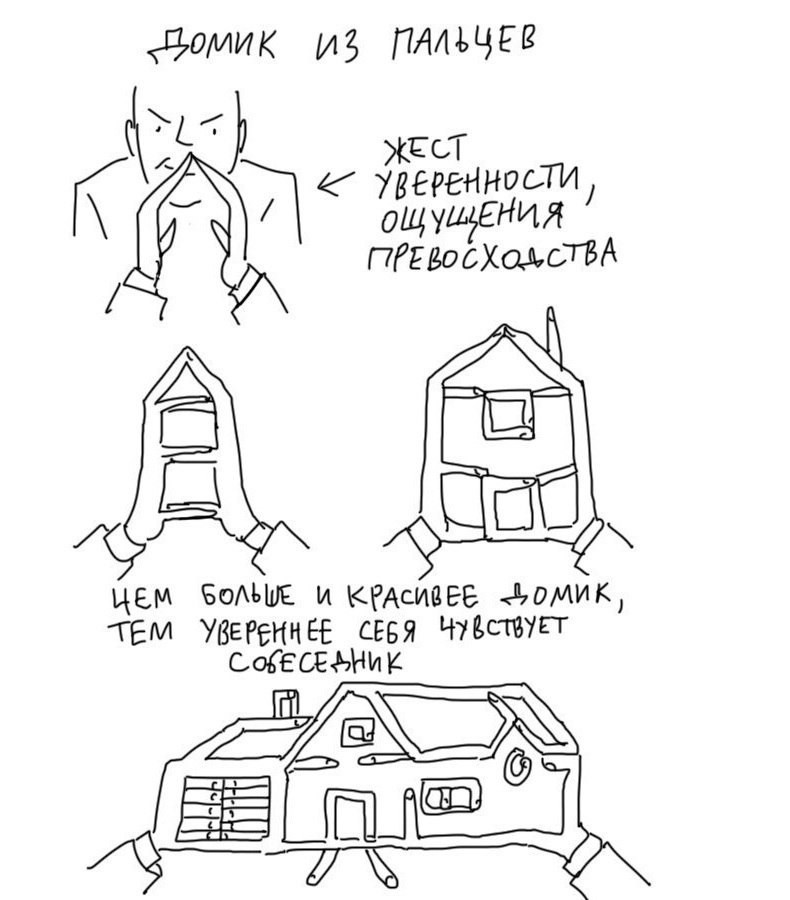 ДОМИК ИЗ ПАЛЬЦЕВ
ЖЕСТ
УВЕРЕННОСТИ,
ОЩУЩЕНИЯ
ПРЕВОСХОДСТВА
ЧЕМ БОЛЬШЕ И КРАСИВЕЕ ДОМИК,
ТЕМ УВЕРЕННЕЕ СЕБЯ ЧУВСТВУЕТ
СОБЕСЕДНИК